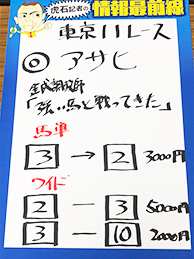 虎石記者の
情報最前線
東京11レース
◎ アサヒ
金成調教師
「強い馬と戦ってきた」
馬単
3 → 2 3000円
ワイド
2 ー 3 5000円
3 ー 10 2000円